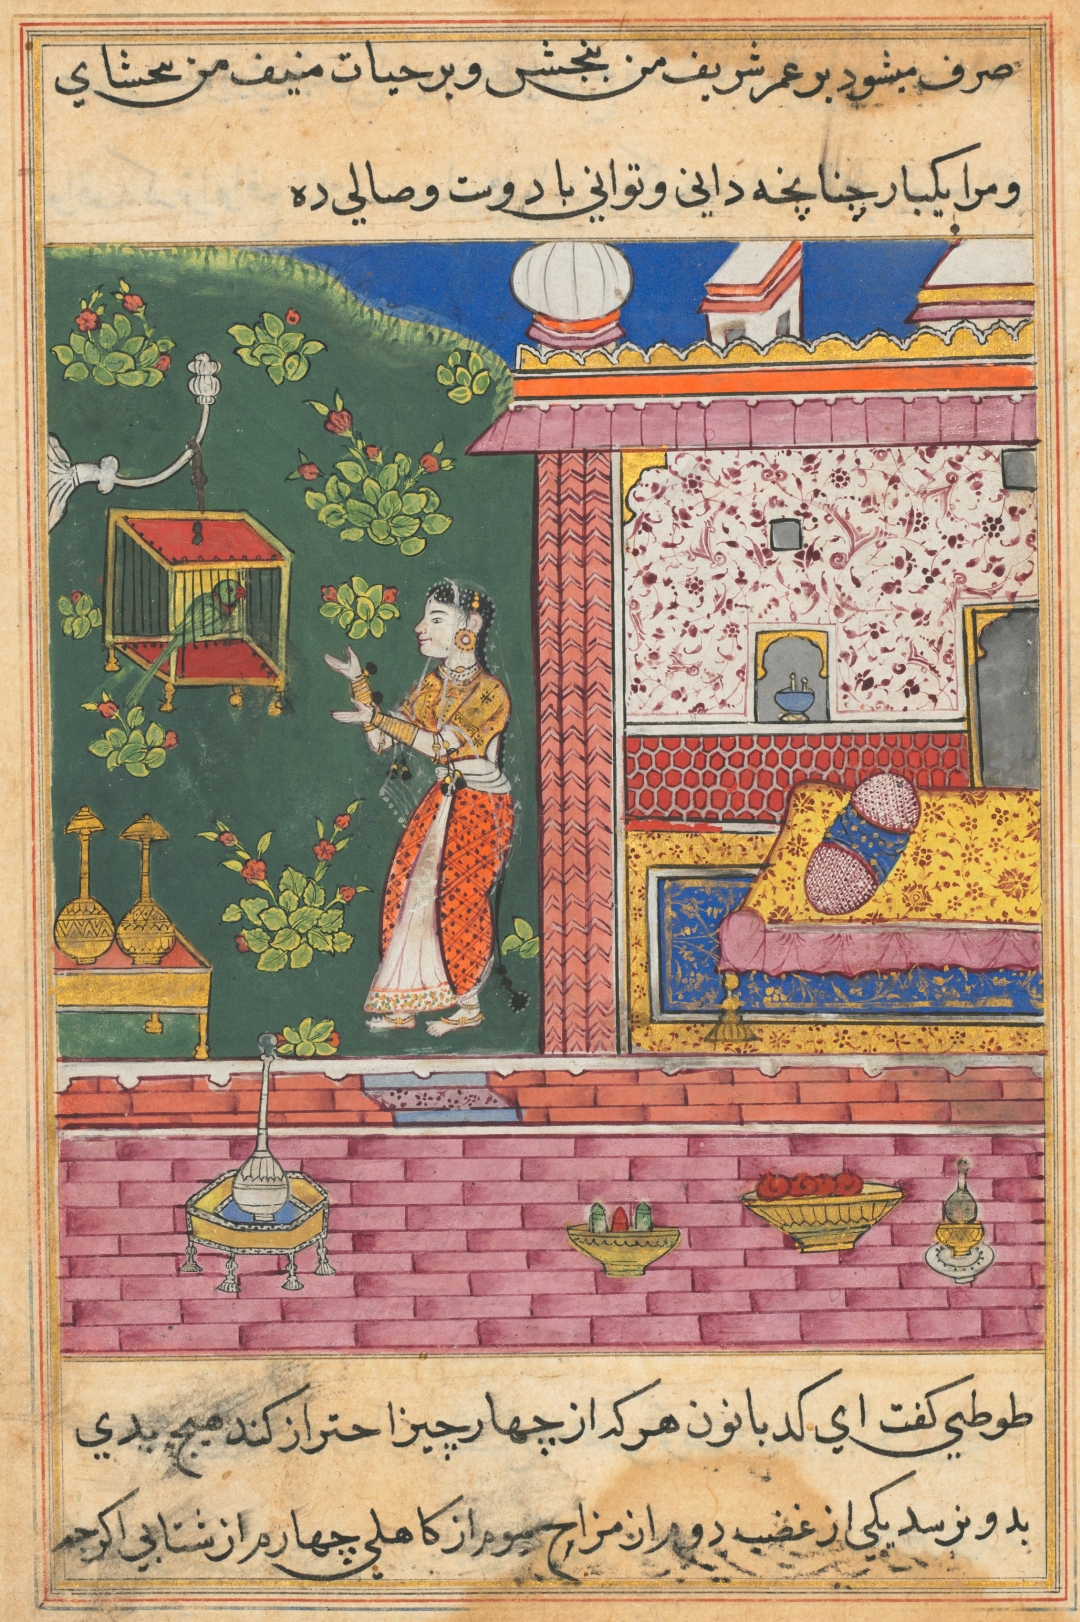 صرف میشود بر عمر شریف من بخش و بر حیات منیف من بخشای
و مرا یکبار چنانچه دانی و توانی با دوست وصالی ده
طوطی کفت ای کدبانو هر که از چهار چیز احتراز کند هیچ بدی
بدو نرسد یکی از غضب دوم از مزاح سوم از کاهلی چهارم از شتابی اکر چه